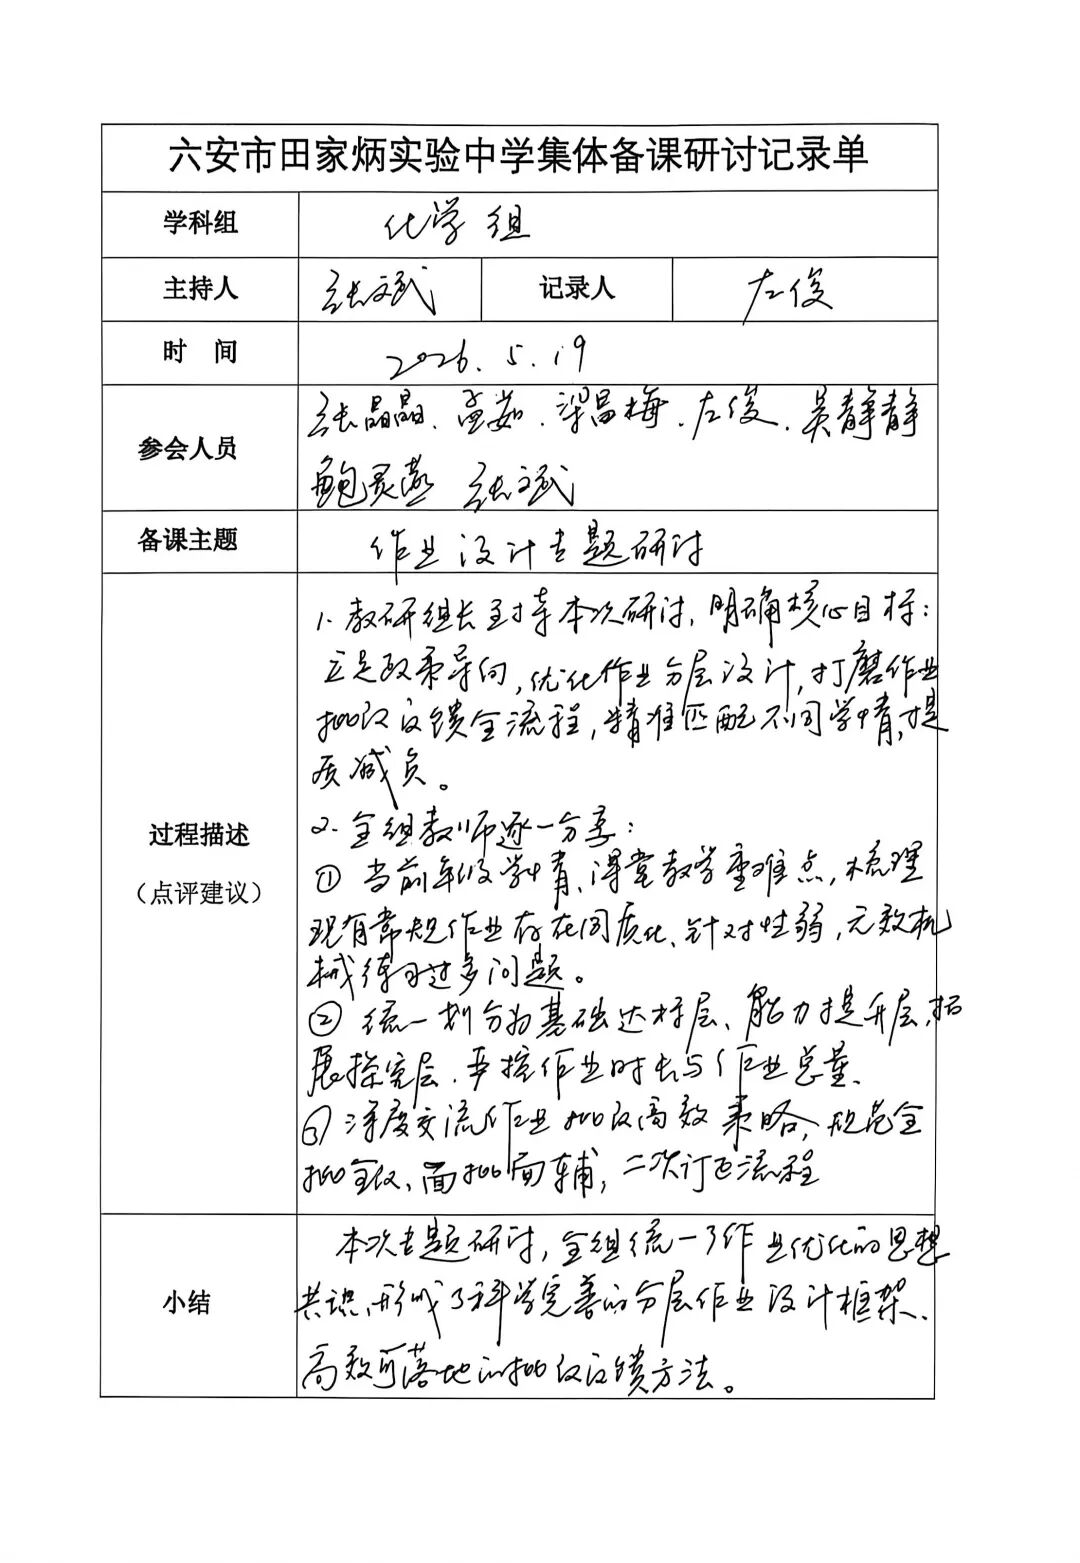 六安市田家炳实验中学集体备课研讨记录单
学科组 化学组
主持人 张文斌 记录人 左俊
时 间 2026.5.19
张晶晶、孟茹、梁昌梅、左俊、吴静静
参会人员
鲍灵燕 张文斌
备课主题 作业设计专题研讨
1. 教研组长主持本次研讨,明确核心目标:
立足政策导向,优化作业分层设计,打磨作业
批改反馈全流程,精准匹配不同学情,提
质减负。
2. 全组教师逐一分享:
过程描述
(点评建议)
① 当前年级学情、课堂教学重难点,梳理
现有常规作业存在同质化、针对性弱,无效机
械练习过多问题。
② 统一划分为基础达标层、能力提升层,拓
展探究层.严控作业时长与作业总量、
③ 深度交流作业批改高效策略,规范全
批全改、面批面辅,二次订正流程
本次专题研讨,全组统一了作业优化的思想
小结
共识,形成了科学完善的分层作业设计框架、
高效可落地的批改反馈方法。